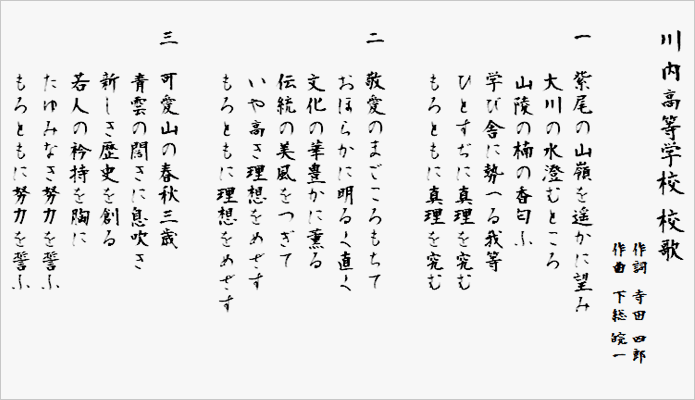 川内高等学校 校歌
作詞 寺田 四郎
作曲 下総 皖一
一
紫尾の山嶺を遥かに望み
大川の水澄むところ
山陵の楠の香匂ふ
学び舎に勢へる我等
ひとすぢに真理を究む
もろともに真理を究む
二
敬愛のまごころもちて
おほらかに明るく直く
文化の華豊かに薫る
伝統の美風をつぎて
いや高き理想をめざす
もろともに理想をめざす
三
可愛山の春秋三歳
青雲の閎きに息吹き
新しき歴史を創る
若人の衿持を胸に
たゆみなき努力を誓ふ
もろともに努力を誓ふ